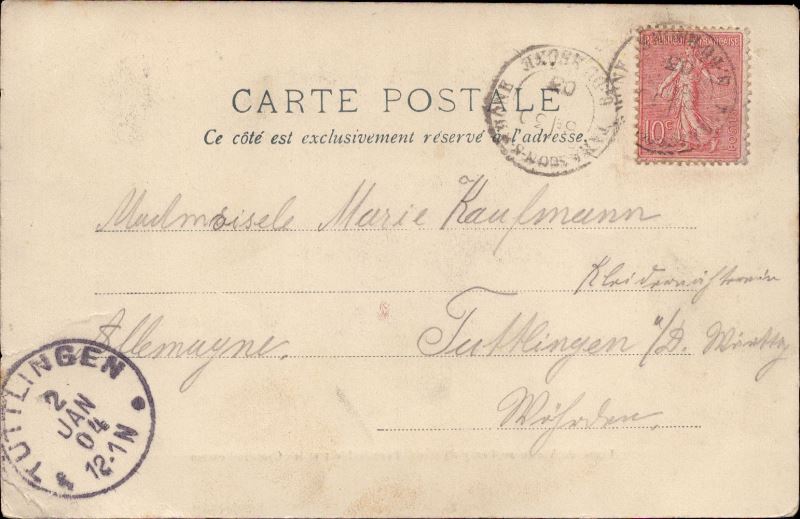 CARTE POSTALE
Ce côté est exclusivement réservé à l'adresse.
10c
Mademoisele Marie Kaufmann
Kleidernähterein
Allemagne. Tuttlingen a/D. Württbg
Wöhrden.
TUTTLINGEN
2
JAN
04
12-1N